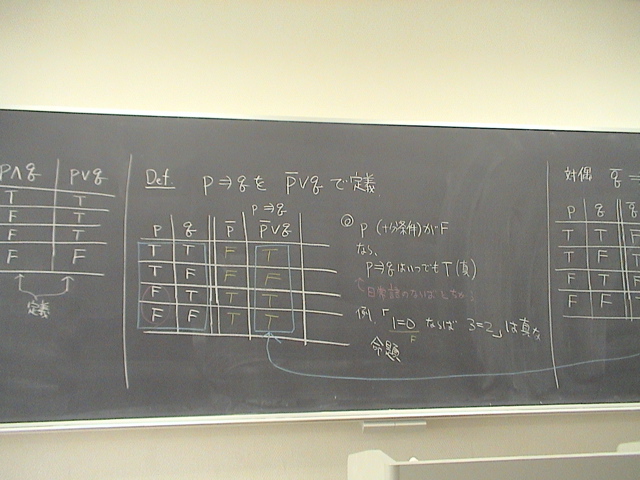 p∧q p∨q
T T
F T
F T
F F
定義
Def p⇒qを p̄∨q で定義
p⇒q
p q p̄ p̄∨q
T T F T
T F F F
F T T T
F F T T
◎ p (十分条件)がF
なら、
p⇒qはいつでもT(真)
例、「1=0 ならば 3=2」は真な
F
命題
対偶 q̄ ⇒
p q q̄
T T F
T F T
F T F
F F T